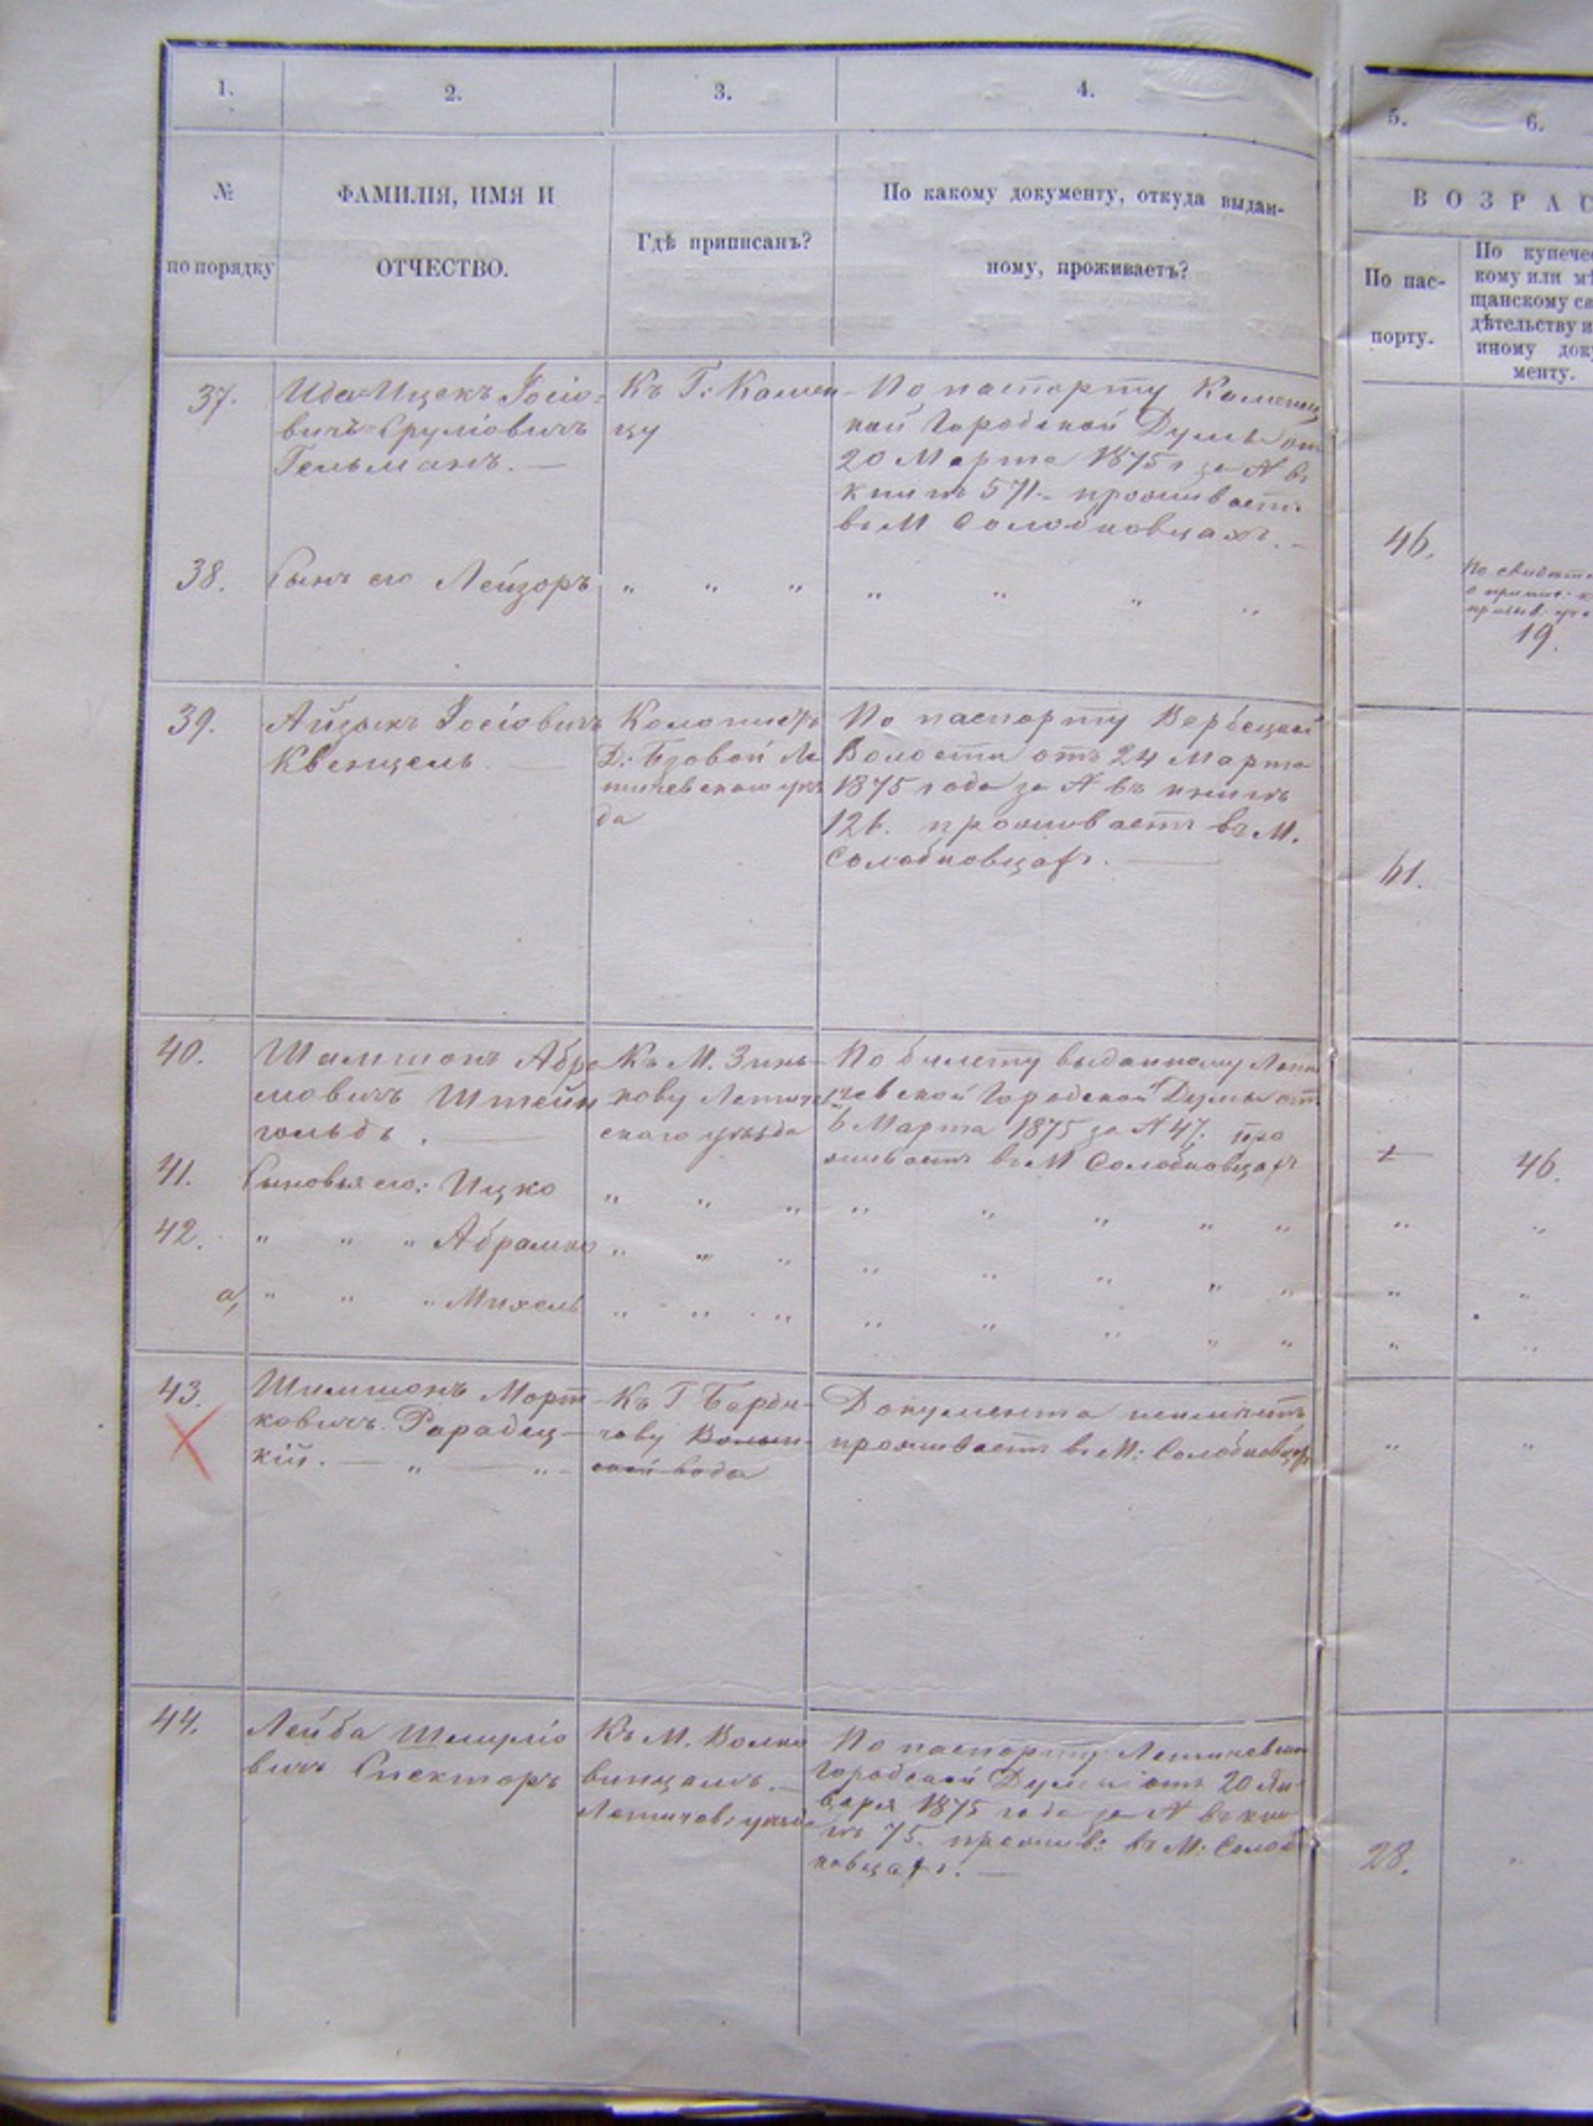 1.
2.
3.
4.
5.
6.
№
по порядку
ФАМИЛІЯ, ИМЯ И
ОТЧЕСТВО.
Гдѣ приписанъ?
По какому документу, откуда выдан-
ному, проживаетъ?
ВОЗРАС
По пас-
порту.
По купечес
кому или мѣ
щанскому св
дѣтельству и
иному док
менту.
37.
Ицекъ Іосіо-
вичъ Сруліовичъ
Гельманъ. —
Къ Г: Камен
цу
По паспорту Каменец
кой Городской Думы от
20 Марта 1875 г за № въ
книгѣ 571 - проживаетъ
въ М Солобковцахъ. -
46.
38.
Сынъ его Лейзоръ
" " "
" " " "
19.
39.
Айзыкъ Іосіовичъ
Квенцель. —
Колонистъ
Д: Ле
тичевскаго уѣз
да
По паспорту Вербецкой
Волости отъ 24 Марта
1875 года за № въ книгѣ
126. проживаетъ въ М.
Солобковцахъ. —
61.
40.
Шамшонъ Абра
мовичъ Штейн
гольдъ. —
Къ М. Зинь-
кову Летич
скаго уѣзда
По билету выданному Лети
чевской Городской Думы отъ
6 Марта 1875 за № 47. про
живаетъ въ М Солобковцахъ
46.
41.
Сыновья его: Ицко
" " "
" " " " "
" "
42.
" " " Абрамко
" " "
" " " " "
" "
а,
" " " Михель
" " "
" " " " "
" "
43.
Шимшонъ Морт
ковичъ Рарадец-
кій. — " — " -
Къ Г Барди-
чову Волын-
ской
Документа неимѣетъ
проживаетъ въ М: Солобковцахъ
" "
44.
Лейба Шмуліо
вичъ Спекторъ
Къ М. Волко
винцамъ. —
Летичев: уѣзда
По паспорту Летичевской
Городской Думы отъ 20 Ян-
варя 1875 года за № въ кни
гѣ 75. прожив: въ М: Солоб
ковцахъ. —
28.
"